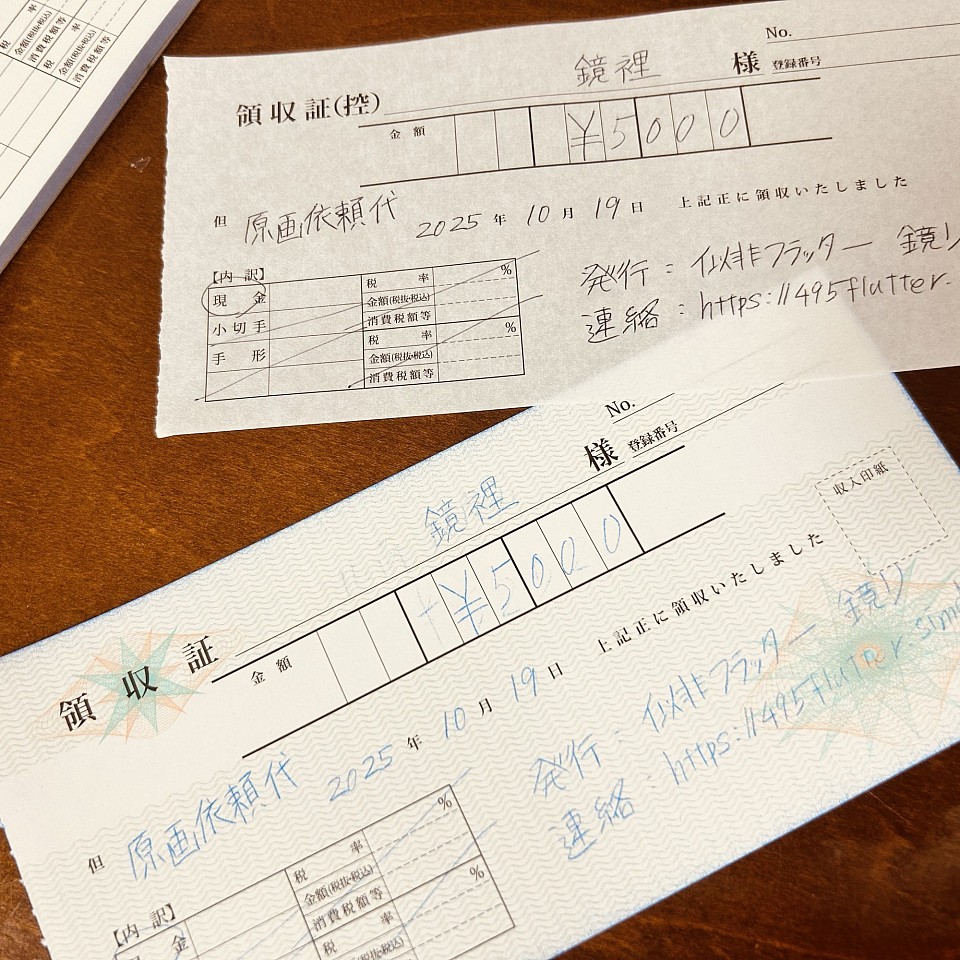 率
税 金額(税抜・税込)
消費税額等
率
税 金額(税抜・税込)
消費税額等
No.
鏡裡 様 登録番号
領収証(控)
金額 ¥5000
但 原画依頼代 2025年10月19日 上記正に領収いたしました
【内訳】
現金
小切手
手形
税率 %
金額(税抜・税込)
消費税額等
税率 %
金額(税抜・税込)
消費税額等
発行：似非フラッター 鏡り
連絡：https://495flutter.
No.
鏡裡 様 登録番号
領収証
金額 ¥5000
収入印紙
但 原画依頼代 2025年10月19日 上記正に領収いたしました
【内訳】
金
税率 %
金額(税抜・税込)
消費税額等
税率 %
金額(税抜・税込)
発行：似非フラッター 鏡り
連絡：https://495flutter.